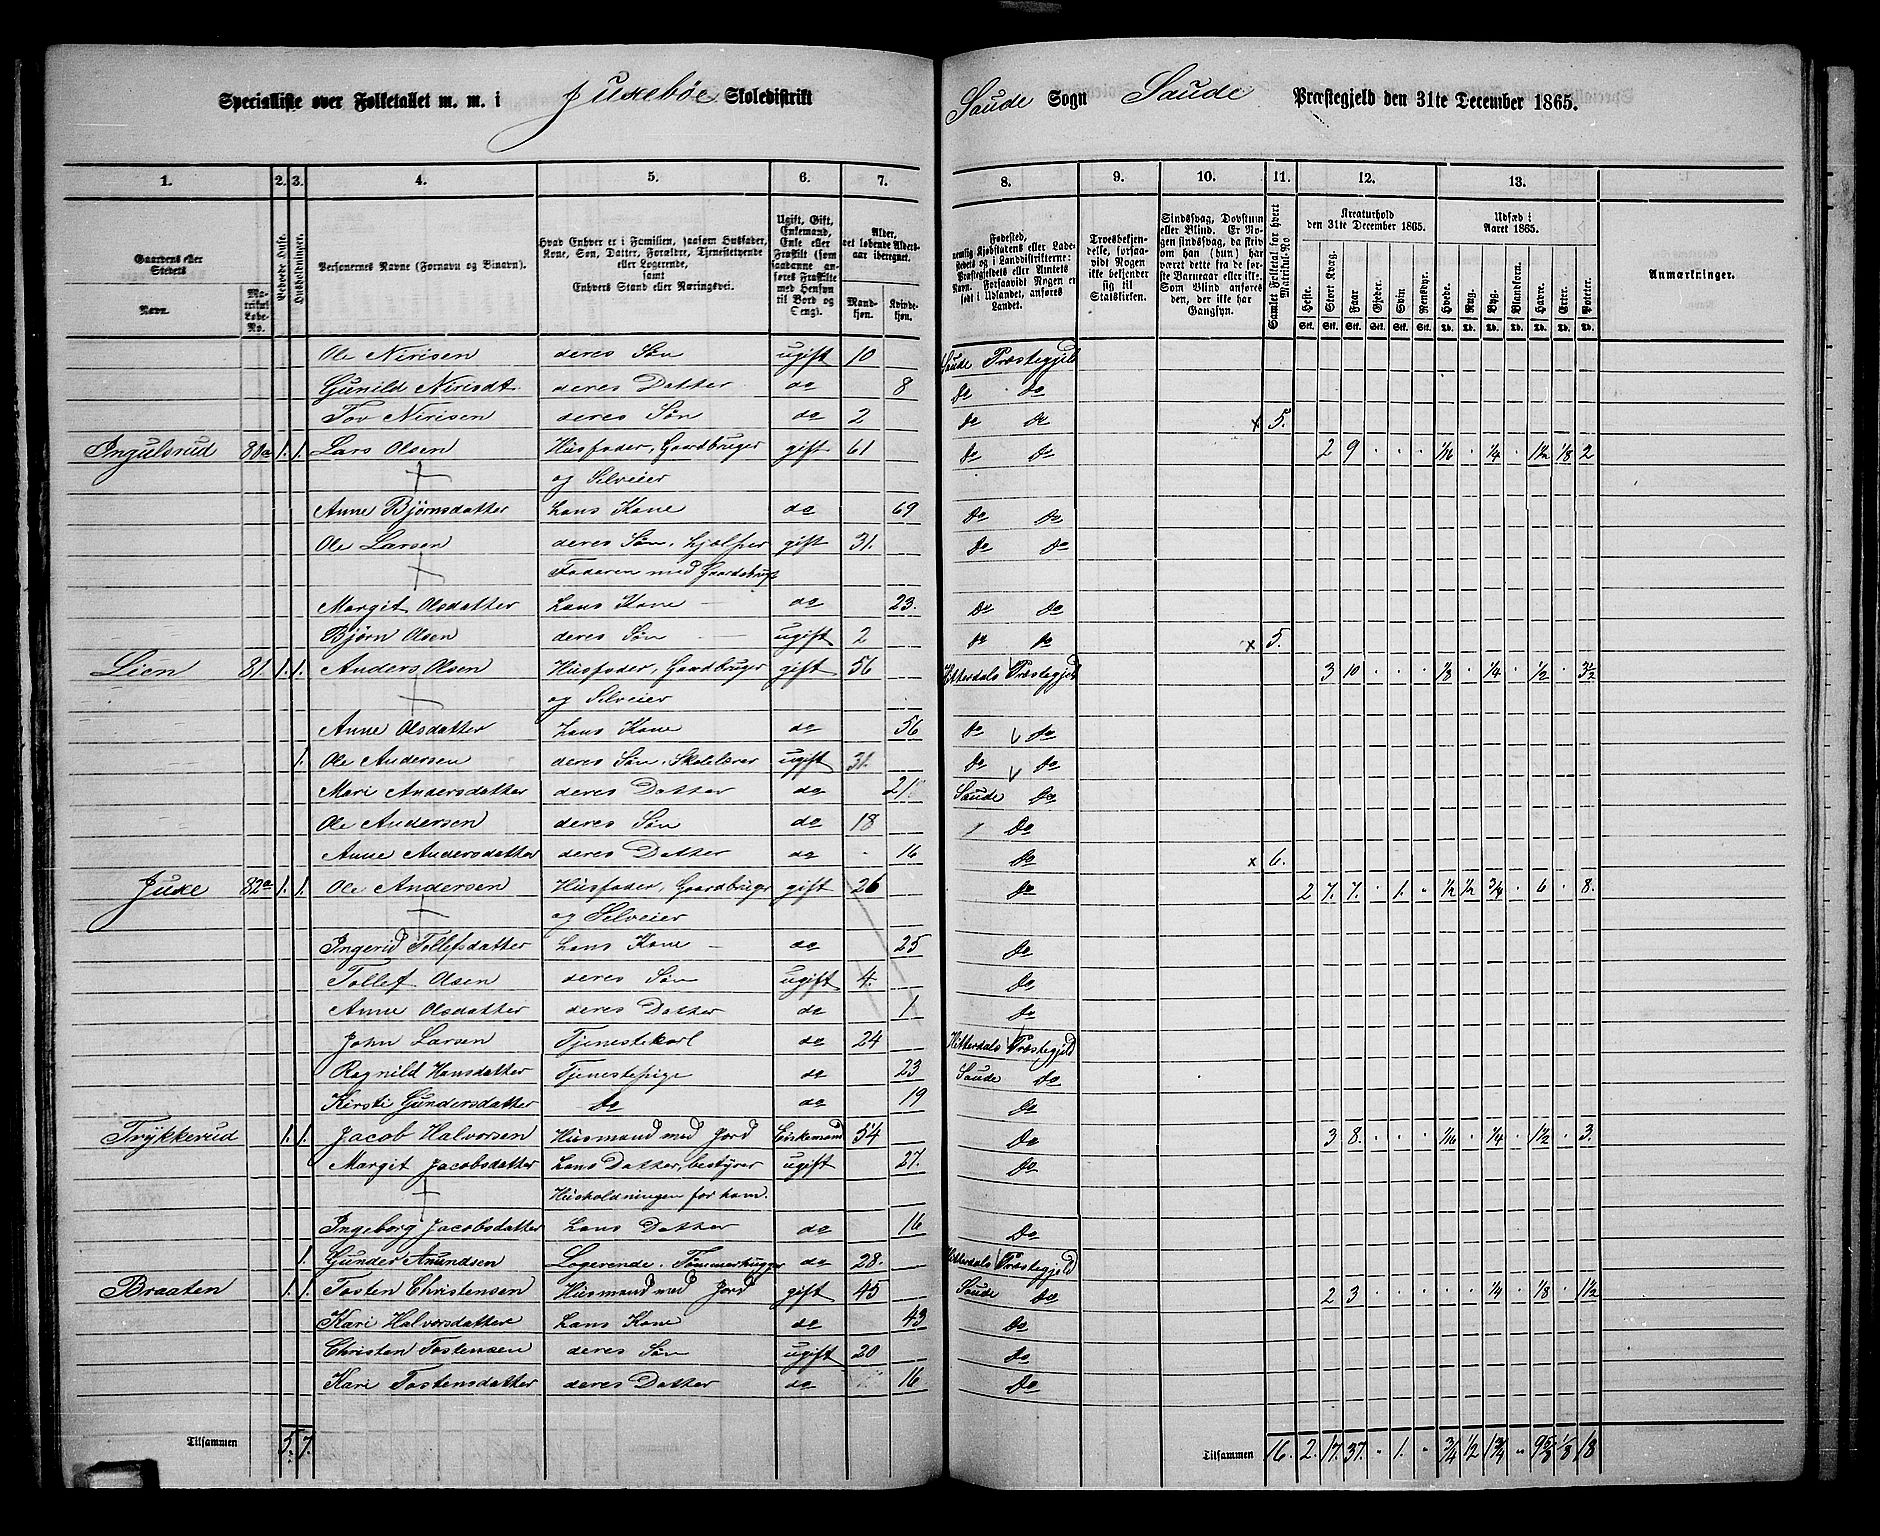 Specialliste over Folketallet m. m. i Juxebøe Skoledistrikt
Saude Sogn Saude Præstegjeld den 31te December 1865.
1. 2. 3. 4. 5. 6. 7. 8. 9. 10. 11. 12. 13.
Gaardens eller Stedets
Navn. Matrikul Løbe-No.
Beboede Huse.
Husholdninger.
Personernes Navne (Fornavn og Binavn).
Hvad Enhver er i Familien, saasom Husfader, Kone, Søn, Datter, Forældre, Tjenestetyende eller Logerende, samt Enhvers Stand eller Næringsvei.
Ugift, Gift, Enkemand, Enke eller Fraskilt (som saadanne anføres Fraskilte med Hensyn til Bord og Seng).
Alder, det løbende Aldersaar iberegnet.
Mandkjøn. Kvindekjøn.
Fødested, nemlig Kjøbstadens eller Ladestedets og i Landdistrikterne: Præstegjeldets eller Amtets Navn. Forsaavidt Nogen er født i Udlandet, anføres Landet.
Troesbekjendelse, forsaavidt Nogen ikke bekjender sig til Statskirken.
Sindssvag, Døvstum eller Blind. Er Nogen sindssvag, da skrives om han (hun) har været dette fra de første Barneaar eller ikke. Som Blind anføres den, der ikke har Gangsyn.
Samlet Folketal for hvert Matrikul-No
Kreaturhold den 31te December 1865.
Heste. Stort Kvæg. Faar. Gjeder. Svin. Rensdyr.
Udsæd i Aaret 1865.
Hvede. Rug. Byg. Blandkorn. Havre. Erter. Poteter.
Anmærkninger.
Ole Nirisen deres Søn ugift 10 Saude Præstegjeld
Gunild Nirisdt. deres Datter do 8 Do do
Tov Nirisen deres Søn do 2 do do x 5.
Ingulsrud 80a 1. 1. Lars Olsen Husfader, Gaardbruger gift 61 do do 2 9 . . . 1/16 . 1/4 . 1 1/2 1/8 2
og Selveier
Anne Bjørnsdatter Hans Kone do 69 Do do
Ole Larsen deres Søn, hjælper gift 31. do do
Faderen med Gaardsbrug
Margit Olsdatter Hans Kone do 23. Do do
Bjørn Olsen deres Søn ugift 2 do do x 5.
Lien 81. 1. 1. Anders Olsen Husfader, Gaardbruger gift 56 Hitterdals Præstegjeld 3 10 . . . 1/8 . 1/4 . 1/2 . 3 1/2
og Selveier
Anne Olsdatter Hans Kone do 56 do do
1. Ole Andersen deres Søn, Skolelærer ugift 31. do do
Mari Andersdatter deres Datter do 21. Saude do
Ole Andersen deres Søn do 18 Do
Anne Andersdatter deres Datter do 16 do x 6.
Juxe 82a 1. 1. Ole Andersen Husfader, Gaardbruger gift 26 do 2 7. 7. . 1. . 1/2 1/2 3/4 . 6 . 8.
og Selveier
Ingerid Tollefsdatter Hans Kone do 25 do
Tollef Olsen deres Søn ugift 4. do
Anne Olsdatter deres Datter do 1 do
John Larsen Tjenestekarl do 24 Hitterdals Præstegjeld
Ragnild Hansdatter Tjenestepige do 23 Saude do
Kirsti Gundersdatter do do 19 Do
Trykkerud 1. 1. Jacob Halvorsen Husmand med Jord Enkemand 54 Do 3 8. . . . 1/16 . 1/4 . 1 1/2 . 3.
Margit Jacobsdatter Hans Datter, bestyrer ugift 27. do
Husholdningen for ham.
Ingeborg Jacobsdatter Hans Datter do 16 Do
1. Gunder Amundsen Logerende, Tømmerhugger do 28. Hitterdals Præstegjeld
Braaten 1. 1. Tosten Christensen Husmand med Jord gift 45 Saude do 2 3 . . . . . 1/4 . 1/8 . 1 1/2
Kari Halvorsdatter Hans Kone do 43 Do
Christen Tostensen deres Søn ugift 20 do
Kari Tostensdatter deres Datter do 16 Do
Tilsammen 5. 7. Tilsammen 16. 2. 17. 37. . 1. . 3/4 1/2 1 3/4 . 9 5/8 1/8 18